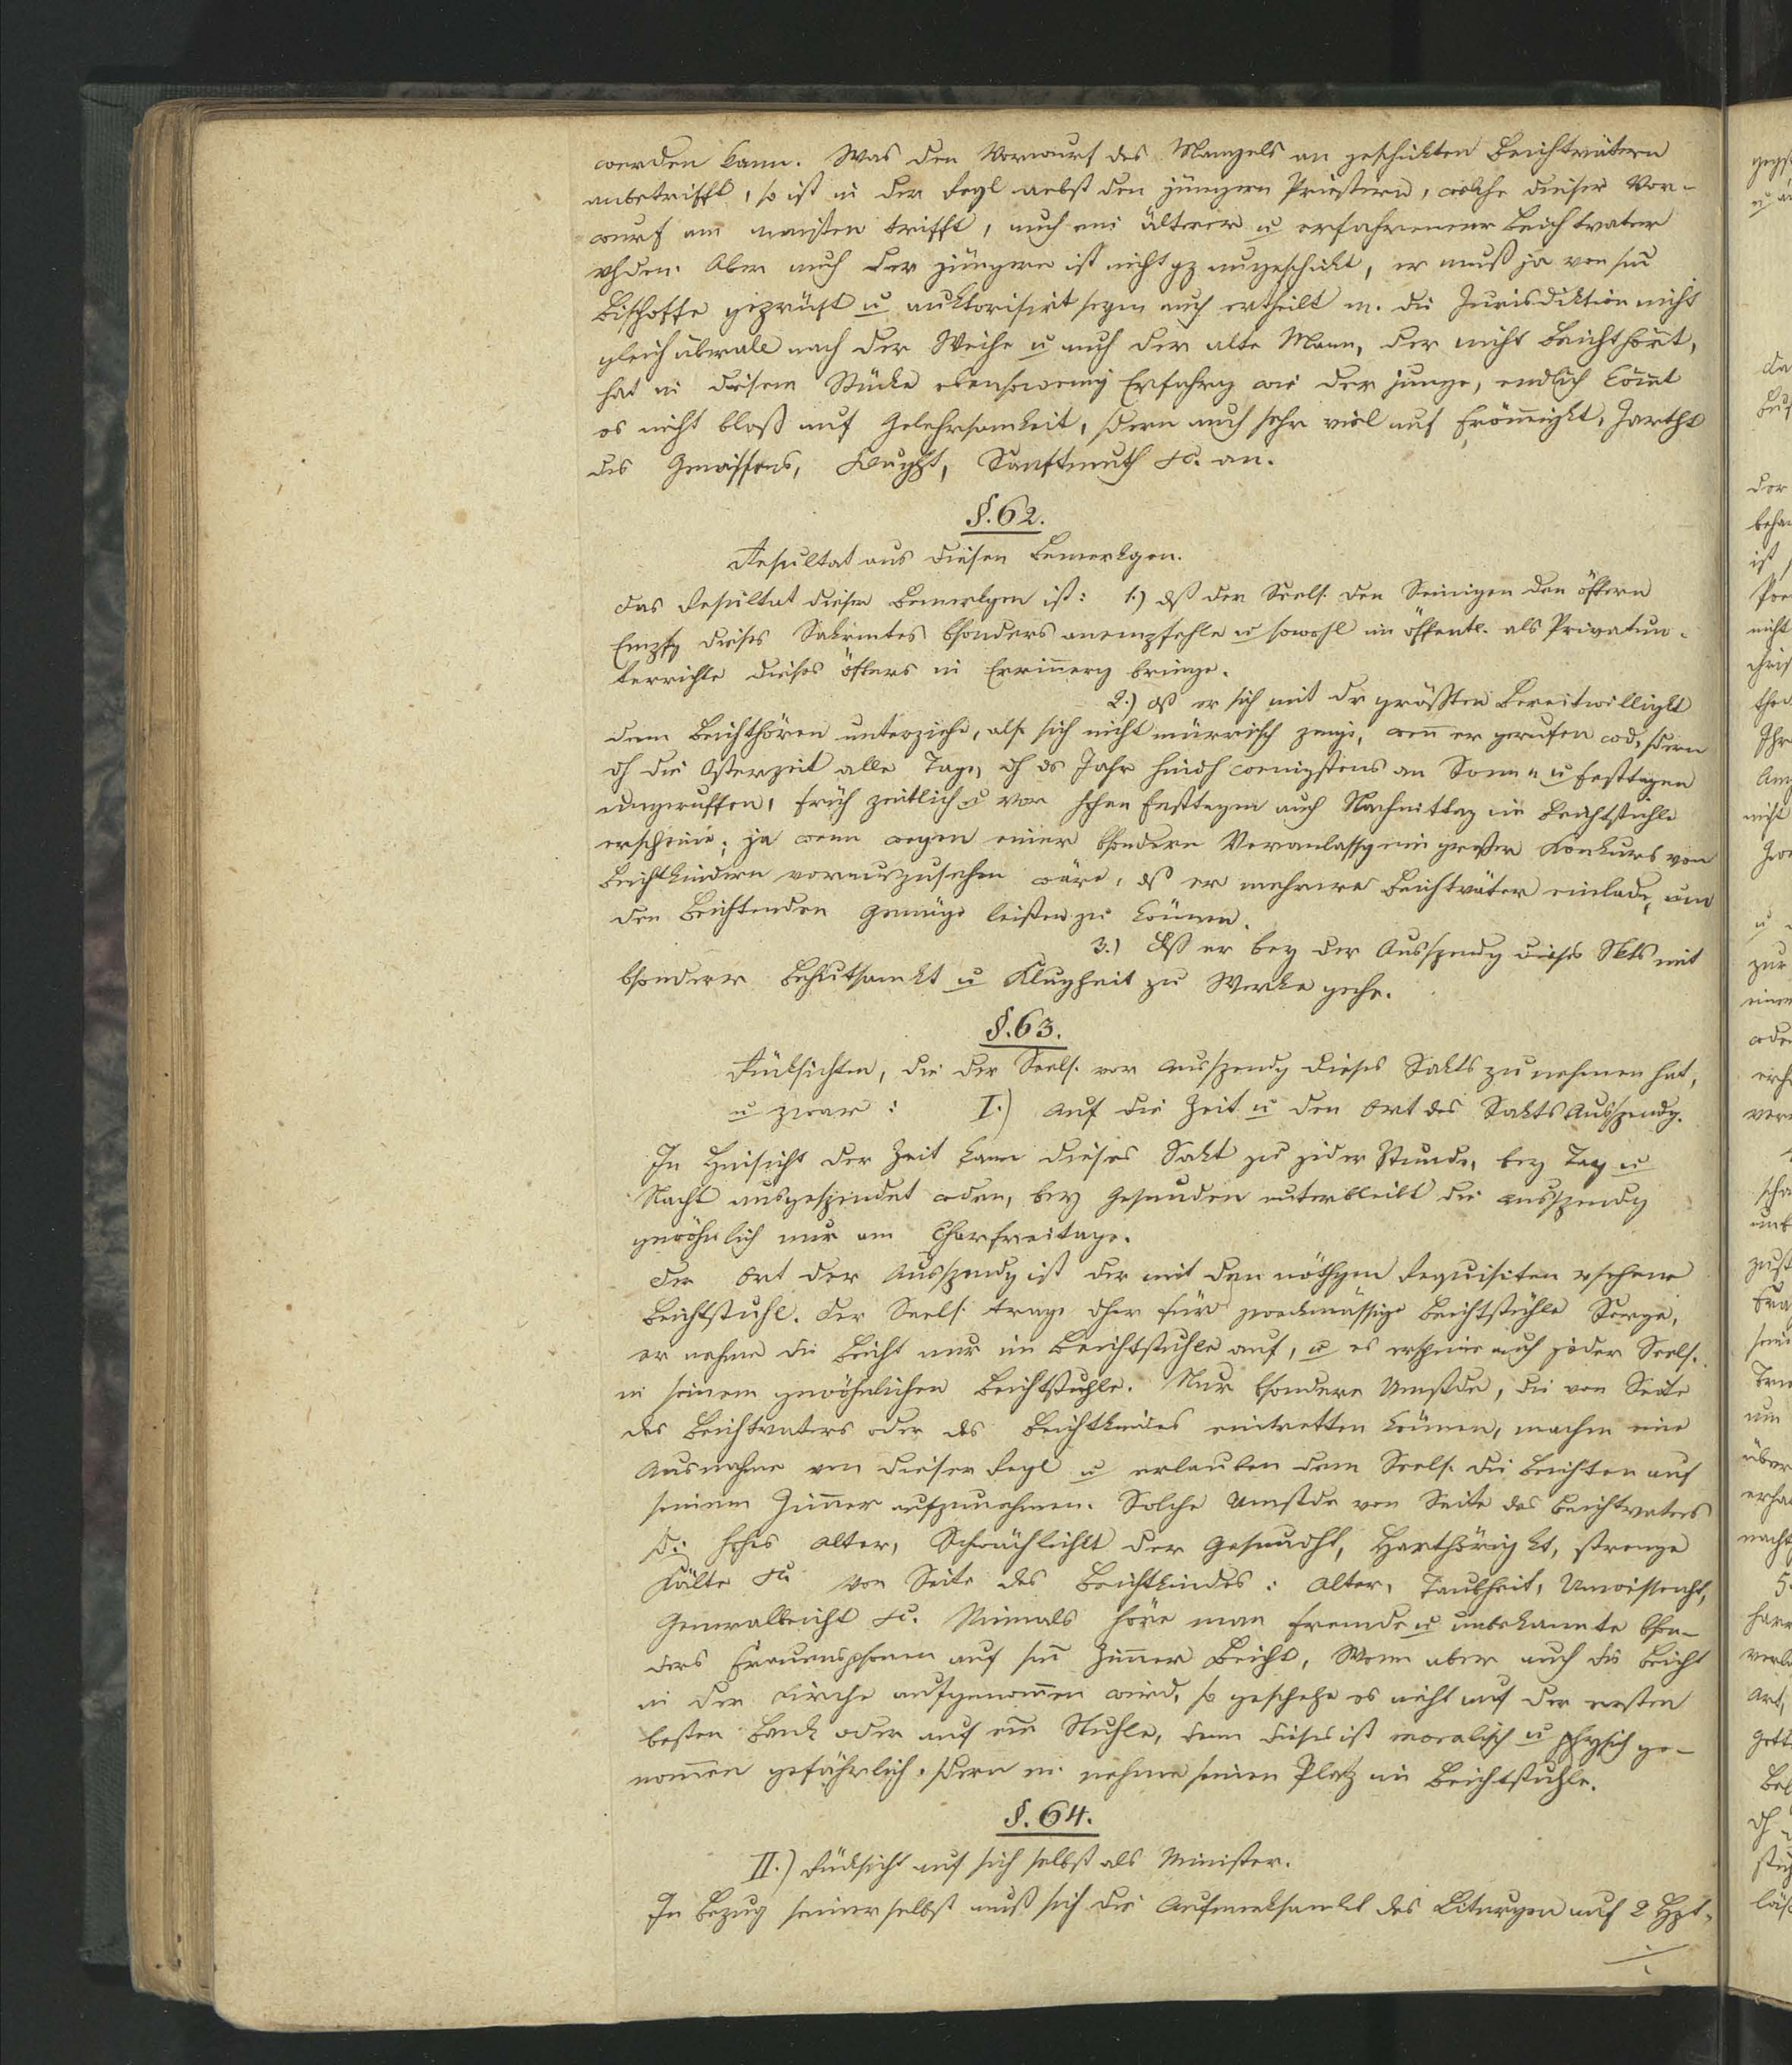 werden kann. Was den Vorwurf des Mangels an geschickten Beichtvätern
anbetrifft, so ist in der Regl nebst den jüngern Priestern, welche dieser Vor-
wurf am meisten trifft, auch ein älterer u erfahrenerer Beichtvater
vhden. Aber auch der jüngere ist nicht gz ungeschickt, er muß ja von sm̄
Bischoffe geprüft u auktorisirt seyn auch ertheilt m. die Jurisdiktion nicht
gleich überall nach der Weihe u auch der alte Mann, der nicht Beicht hört,
hat in diesem Stücke ebensowenig Erfahrg wie der junge, endlich kom̄t
es nicht bloß auf Gelehrsamkeit, sdern auch sehr viel auf From̄igkt, Zartht
des Gewissens, Klught, Sanftmuth &c. an.
§. 62.
Resultat aus diesen Bemerkgen.
Das Resultat dieser Bemerkgen ist: 1.) dß der Seels. den Seinigen den öftern
Empfg dieses Sakrmtes bsonders anempfehle u sowohl im öffentl. als Privatun-
terrichte dieses öfters in Erin̄erg bringe.
2.) dß er sich mit dr größten Bereitwilligkt
dem Beichthören unterziehe, als sich nicht mürrisch zeige, wen̄ er gerufen wd, sdern
dh die Osterzeit alle Tage, dh ds Jahr hindh wenigstens an Sonn- u Festtagen
ungeruffen, früh zeitlich u vor hohen Festtagen auch Nachmittag im Beichtstuhle
erscheine; ja wenn wegen einer bsondern Veranlassg ein großer Konkurs von
Beichtkindern vorauszusehen wäre, dß er mehrere Beichtväter einlade, um
den Beichtenden Genüge leisten zu können.
3.) Dß er bey der Ausspendg dieses Skts mit
bsonderer Behutsamkt u Klugheit zu Werke gehe.
§. 63.
Rücksichten, die der Seels. vor Ausspendg dieses Sakts zu nehmen hat,
u zwar: I.) Auf die Zeit u den Ort des Sakts Ausspendg.
In Hinsicht der Zeit kann dieses Sakt zu jeder Stunde, bey Tag u
Nacht ausgespendet wden, bey Gesunden unterbleibt die Ausspendg
gewöhnlich nur am Charfreitage.
Der Ort der Ausspendg ist der mit den nöthgen Requisiten vsehene
Beichtstuhl. Der Seels. trage dher für zweckmässige Beichtstühle Sorge,
er nehme die Beicht nur im Beichtstuhle auf, u es erscheine auch jeder Seels.
in seinem gewöhnlichen Beichtstuhle. Nur bsondere Umstde, die von Seite
des Beichtvaters oder des Beichtkindes eintretten können, machen eine
Ausnahme von dieser Regl u erlauben dem Seels. die Beichten auf
seinem Zim̄er aufzunehmen. Solche Umstde von Seite des Beichtvaters
sd: hohes Alter, Schwächlichkt der Gesundht, Harthörigkt, strenge
Kälte &c. Von Seite des Beichtkindes: Alter, Taubheit, Unwissenht,
Generalbeicht &c. Niemals höre man fremde u unbekannte bson-
ders Frauenspsonen auf sm̄ Zim̄er Beicht. Wenn aber auch die Beicht
in der Kirche aufgenom̄en wird, so geschehe es nicht auf der ersten
besten Bank oder auf ein̄ Stuhle, denn dieses ist moralisch u physich ge-
nom̄en gefährlich, sdern m. nehme seinen Platz im Beichtstuhle.
§. 64.
II.) Rücksicht auf sich selbst als Minister.
In Bezug seiner selbst muß sich die Aufmerksamkt des Liturgen auf 2 Hpt-